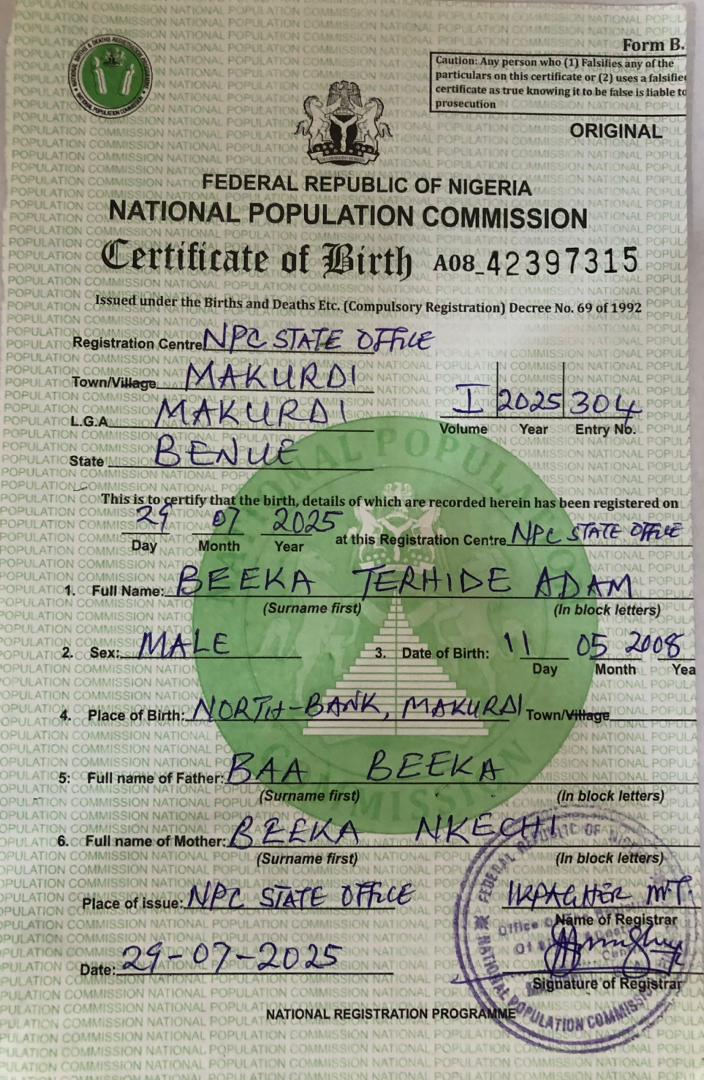 Form B.
Caution: Any person who (1) Falsifies any of the
particulars on this certificate or (2) uses a falsifie
certificate as true knowing it to be false is liable to
prosecution
ORIGINAL
FEDERAL REPUBLIC OF NIGERIA
NATIONAL POPULATION COMMISSION
Certificate of Birth A08_42397315
Issued under the Births and Deaths Etc. (Compulsory Registration) Decree No. 69 of 1992
Registration Centre NPC STATE OFFICE
Town/Village MAKURDI
L.G.A MAKURDI
I 2025 304
Volume Year Entry No.
State BENUE
This is to certify that the birth, details of which are recorded herein has been registered on
29 07 2025 at this Registration Centre NPC STATE OFFICE
Day Month Year
1. Full Name: BEEKA TERHIDE ADAM
(Surname first) (In block letters)
2. Sex: MALE 3. Date of Birth: 11 05 2008
Day Month Yea
4. Place of Birth: NORTH-BANK, MAKURDI Town/Village
5: Full name of Father: BAA BEEKA
(Surname first) (In block letters)
6. Full name of Mother: BEEKA NKECHI
(Surname first) (In block letters)
Place of issue: NPC STATE OFFICE IKPAGHER M.T.
Name of Registrar
Date: 29-07-2025
Signature of Registrar
NATIONAL REGISTRATION PROGRAMME
FEDERAL REPUBLIC OF NIGERIA
NATIONAL POPULATION COMMISSION